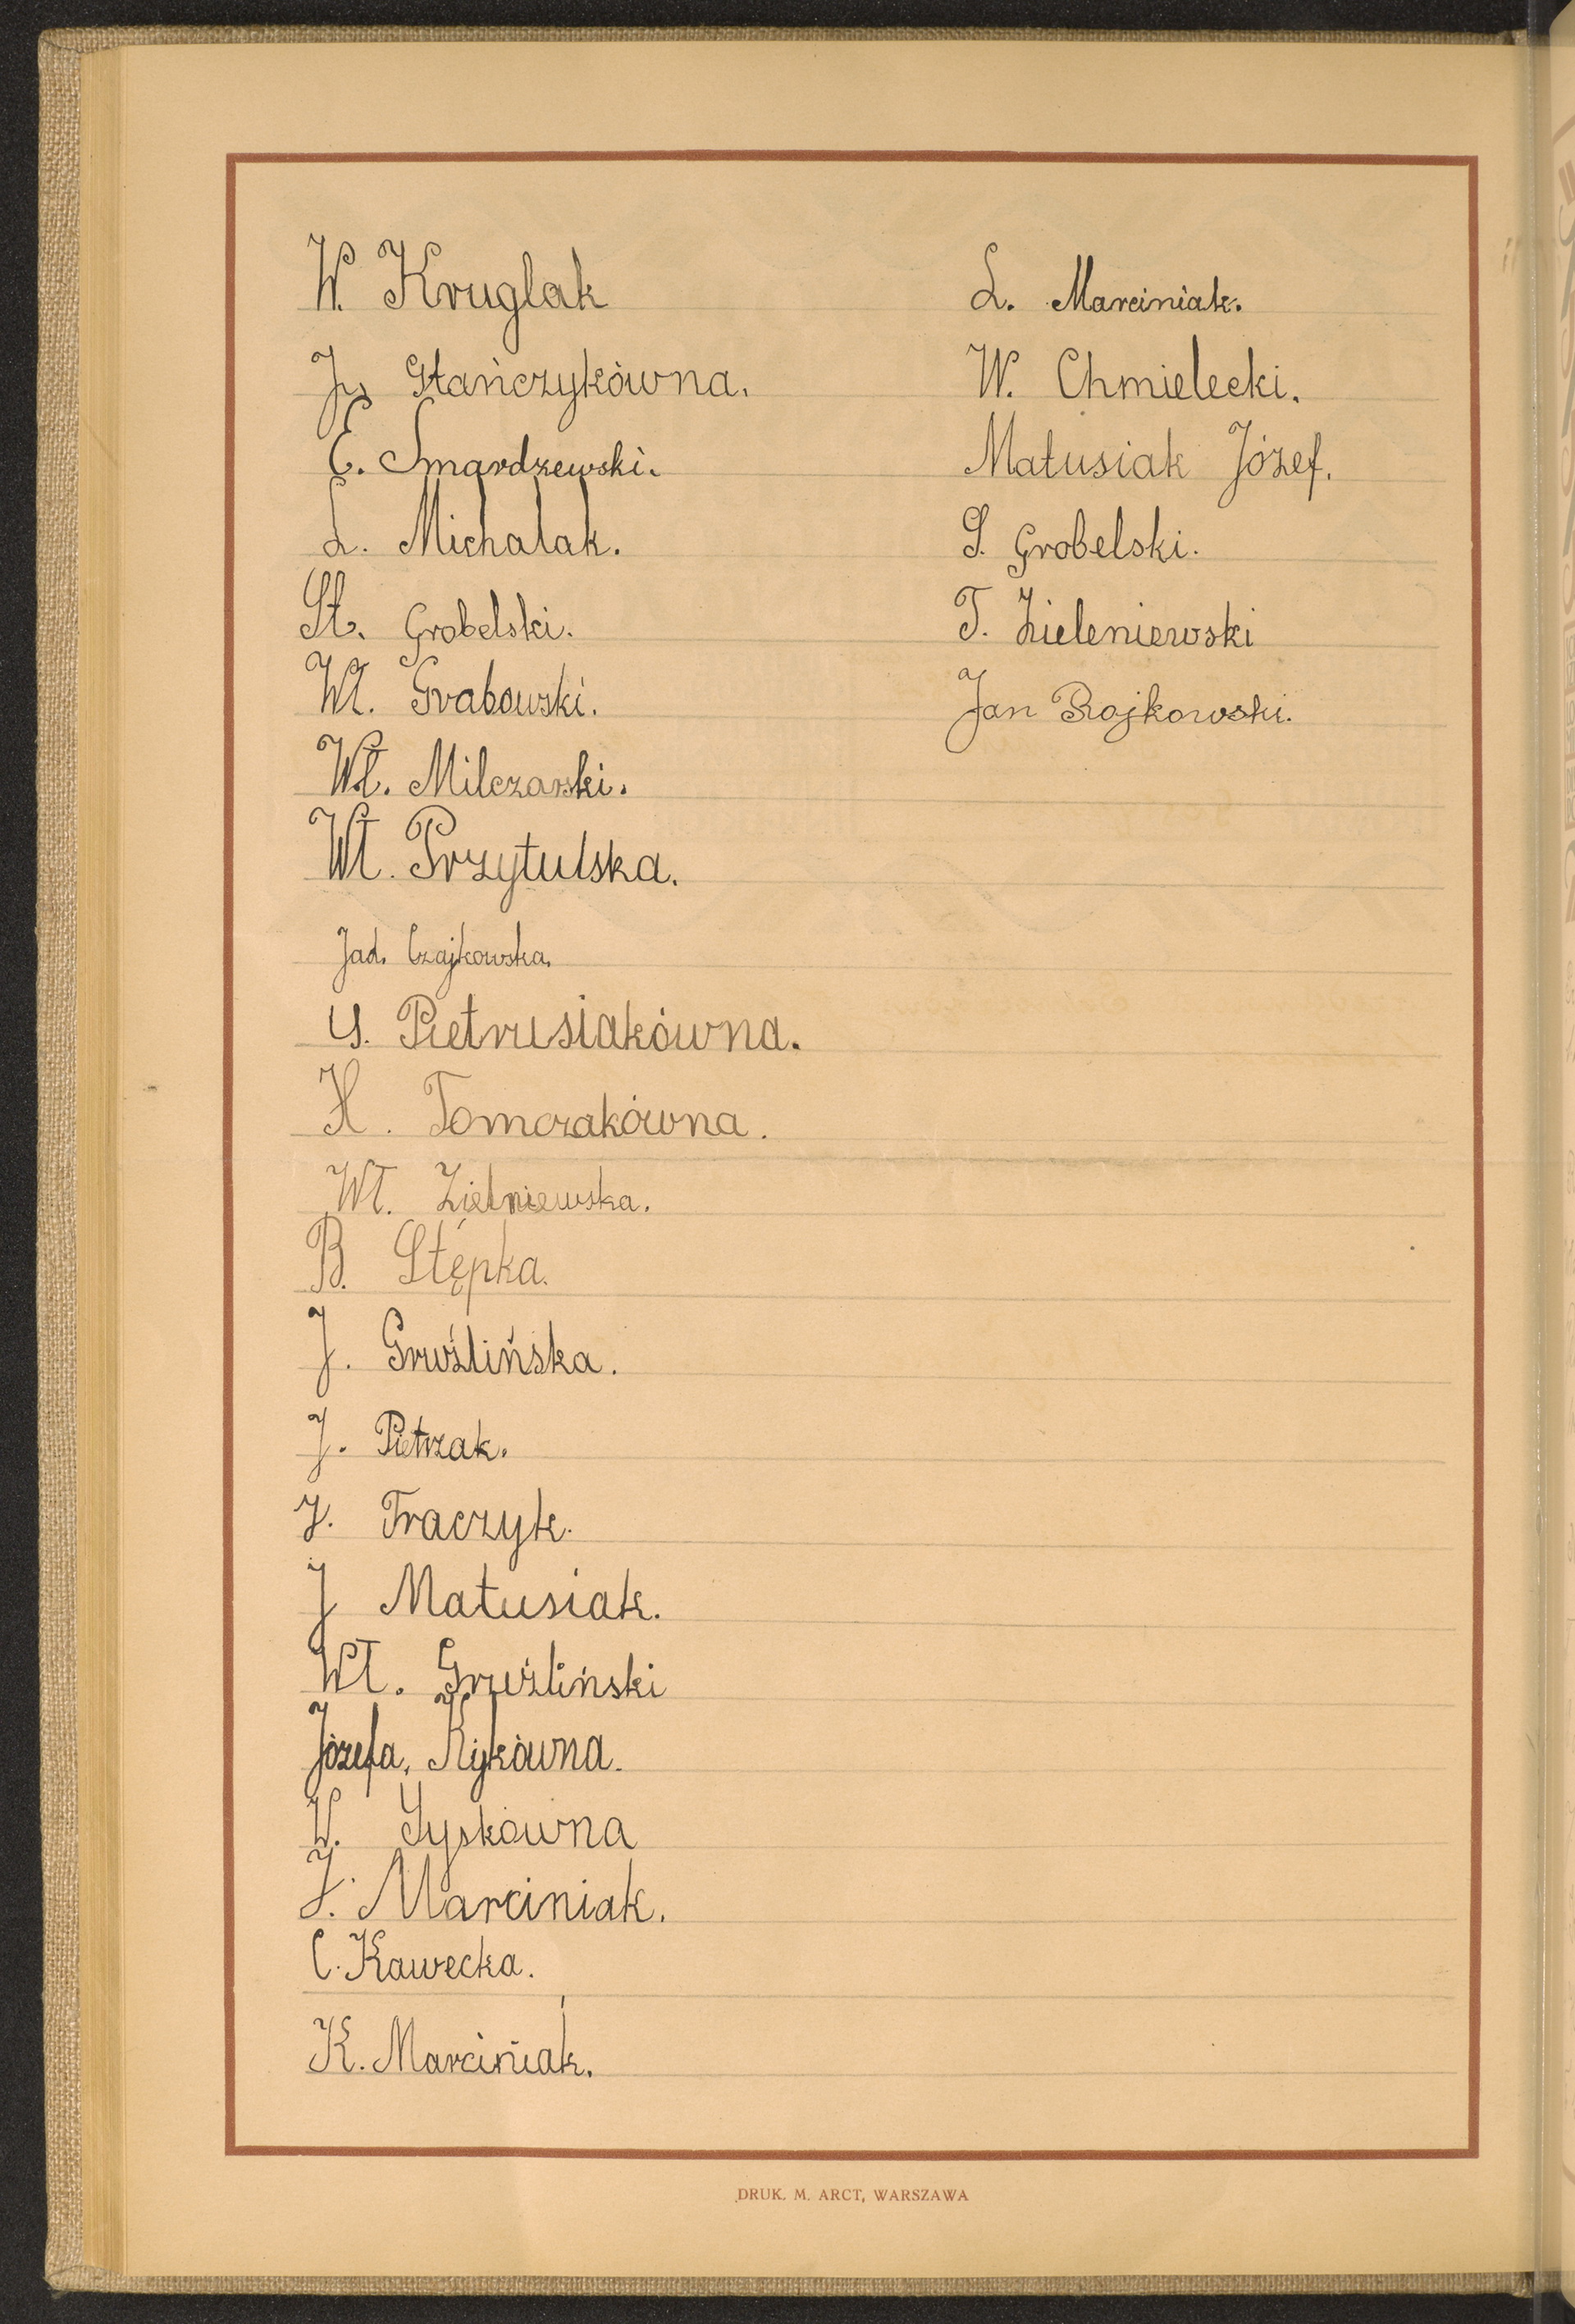 W. Kruglak
J. Stańczykówna.
E. Smardzewski.
L. Michalak.
St. Grobelski.
Wł. Grabowski.
Wł. Milczarski.
Wł. Przytulska.
Jad. Czajkowska.
G. Pietrusiakówna.
H. Tomczakówna.
Wł. Zielniewska.
B. Stępka.
J. Gruźlińska.
J. Pietrzak.
J. Traczyk.
J Matusiak.
Wł. Gruźliński
Józefa, Kykówna.
W. Syskówna
J. Marciniak.
C. Kawecka.
K. Marciniak.
L. Marciniak.
W. Chmielecki.
Matusiak Józef.
S. Grobelski.
T. Zieleniewski
Jan Rojkowski.
DRUK. M. ARCT, WARSZAWA